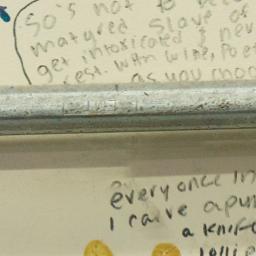 So's not to be
matyred slave of
get intoxicated & nev
rest. with wine, Poet
as you choo
every once in
I carve a pu
a knife